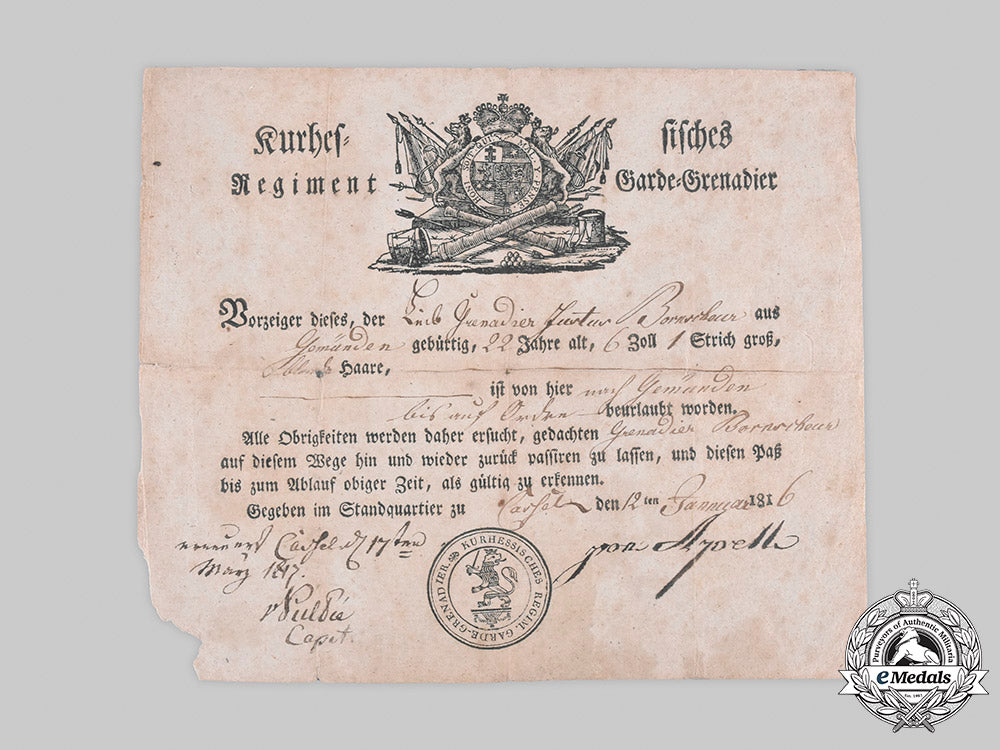 Kurhes= sisches
Regiment Garde-Grenadier
HONI SOIT QUI MAL Y PENSE
Vorzeiger dieses, der Leib Grenadier Justus Bornscheur aus
Gemünden gebürtig, 22 Jahre alt, 6 Zoll 1 Strich groß,
Haare,
ist von hier nach Gemünden
bis auf Ordre beurlaubt worden.
Alle Obrigkeiten werden daher ersucht, gedachten Grenadier Bornscheur
auf diesem Wege hin und wieder zurück passiren zu lassen, und diesen Paß
bis zum Ablauf obiger Zeit, als gültig zu erkennen.
Gegeben im Standquartier zu Cassel den 12ten Januar 1816
erneuert Cassel d 17ten
März 1817.
Capit.
KURHESSISCHES REGIM. GARDE-GRENADIER
Purveyors of Authentic Militaria
eMedals
Est. 1967